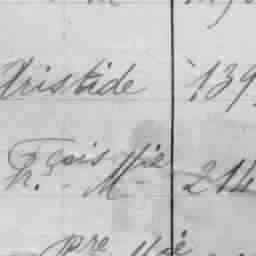 Aristide 139
Fçois Mie
h. - M - 214
Pre Mie